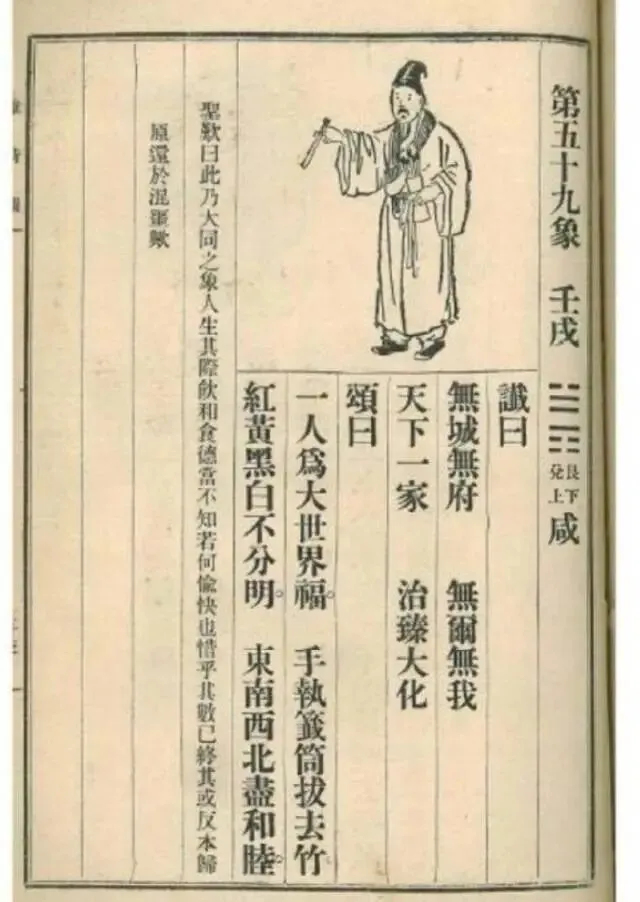 第五十九象 壬戌
艮下
兌上
咸
讖曰
無城無府 無爾無我
天下一家 治臻大化
頌曰
一人爲大世界福。 手執籤筒拔去竹
紅黃黑白不分明 東南西北盡和睦。
聖歎曰此乃大同之象人生其際飲和食德當不知若何愉快也惜乎其數已終其或反本歸
原還於混噩歟